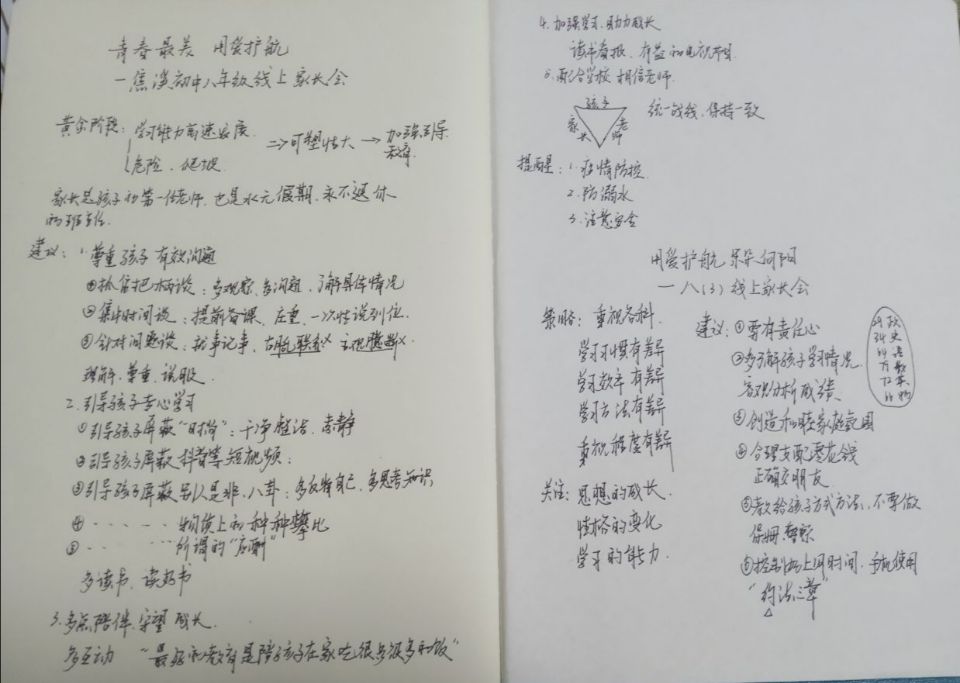 青春最美 用爱护航
—焦溪初中八年级线上家长会
黄金阶段：学习能力高速发展
危险、
=>可塑性大→加强引导
家长是孩子的第一任老师，也是永无假期，永不退休
的班主任。
建议：1.尊重孩子 有效沟通
①抓住把柄谈：多观察，多沟通，了解具体情况
②集中时间谈：提前备课，庄重，一次性说到位。
③针对问题谈：就事论事，
理解、尊重、说服。
2.引导孩子专心学习
①引导孩子屏蔽“时尚”：干净整洁、安静
②引导孩子屏蔽抖音等短视频；
③引导孩子屏蔽 是非、八卦：多反省自己，多思考知识
④······物质上的种种攀比
⑤······所谓的“应酬”
多读书、读好书
3.多点陪伴，守望成长。
多互动 “最好的教育是陪孩子在家吃很多很多的饭”
4.加强学习，助力成长
读书看报，有益的电视节目
5.配合学校 相信老师。
孩子
家长
老师
统一战线，保持一致
提醒：1.疫情防控
2.防溺水
3.注意安全
用爱护航 朵朵向阳
—八（3）线上家长会
策略：重视各科。
学习习惯有差异
学习效率有差异
学习方法有差异
重视程度有差异
关注：思想的成长
性格的变化
学习的能力
建议：①要有责任心
②多了解孩子学习情况
客观分析成绩
③创造和睦家庭氛围
④合理支配零花钱
正确交朋友
⑤教给孩子方式方法，不要做
保姆、警察
⑥控制好上网时间，手机使用
“约法三章”
政
史
语
数
英
物